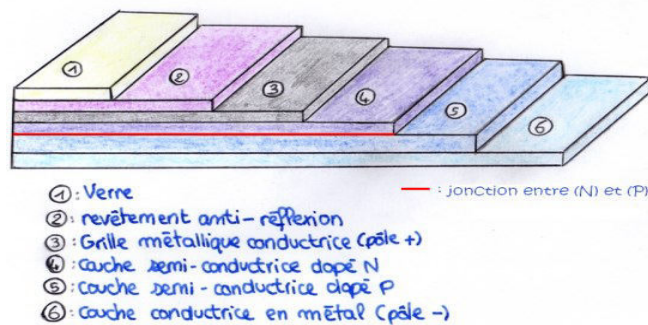 1 2 3 4 5 6
— : jonction entre (N) et (P)
① : Verre
② : revêtement anti-réflexion
③ : Grille métallique conductrice (pôle +)
④ : couche semi-conductrice dopé N
⑤ : couche semi-conductrice dopé P
⑥ : Couche conductrice en métal (pôle -)